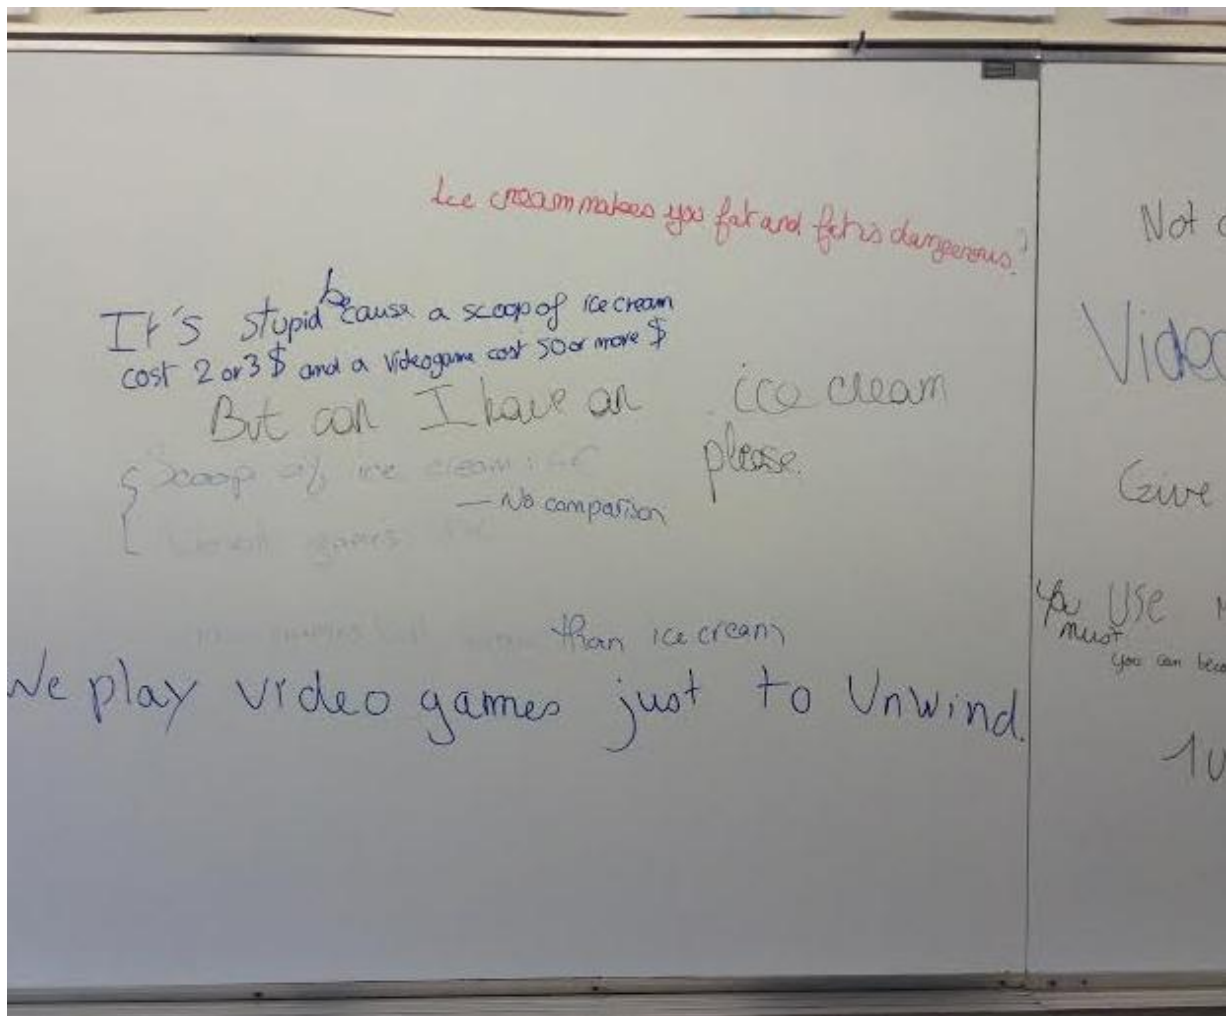 Ice cream makes you fat and fat is dangerous.
It's stupid because a scoop of ice cream
cost 2 or 3 $ and a videogame cost 50 or more $
But can I have an ice cream
please.
Scoop of ice cream :
— No comparison
games
than ice cream
We play video games just to Unwind.
Not
Video
Give
You USE
must
you can